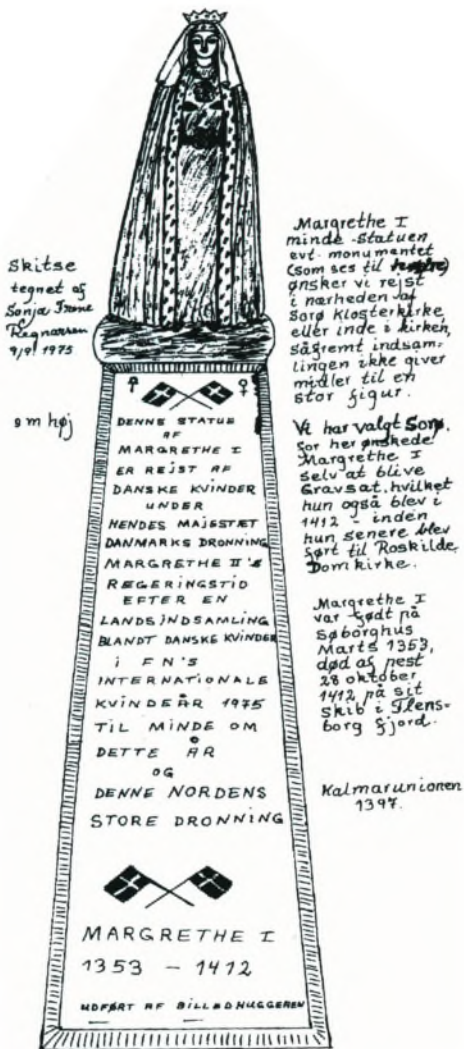 Skitse
tegnet af
Sonja Irene
Regnarsen
9/9 1975
9 m høj
DENNE STATUE
AF
MARGRETHE I
ER REJST AF
DANSKE KVINDER
UNDER
HENDES MAJESTÆT
DANMARKS DRONNING
MARGRETHE II's
REGERINGSTID
EFTER EN
LANDSINDSAMLING
BLANDT DANSKE KVINDER
i FN'S
INTERNATIONALE
KVINDEÅR 1975
TIL MINDE OM
DETTE ÅR
OG
DENNE NORDENS
STORE DRONNING
MARGRETHE I
1353 - 1412
UDFØRT AF BILLEDHUGGEREN
Margrethe I
minde-statuen
evt. monumentet
(som ses til
ønsker vi rejst
i nærheden af
Sorø Klosterkirke
eller inde i kirken,
såfremt indsam-
lingen ikke giver
midler til en
stor figur.
Vi har valgt Sorø,
for her ønskede
Margrethe I
selv at blive
Gravsat, hvilket
hun også blev i
1412 - inden
hun senere blev
ført til Roskilde
Domkirke.
Margrethe I
var født på
Søborghus
Marts 1353,
død af pest
28 oktober
1412 på sit
skib i Flens-
borg fjord.
Kalmarunionen
1397.